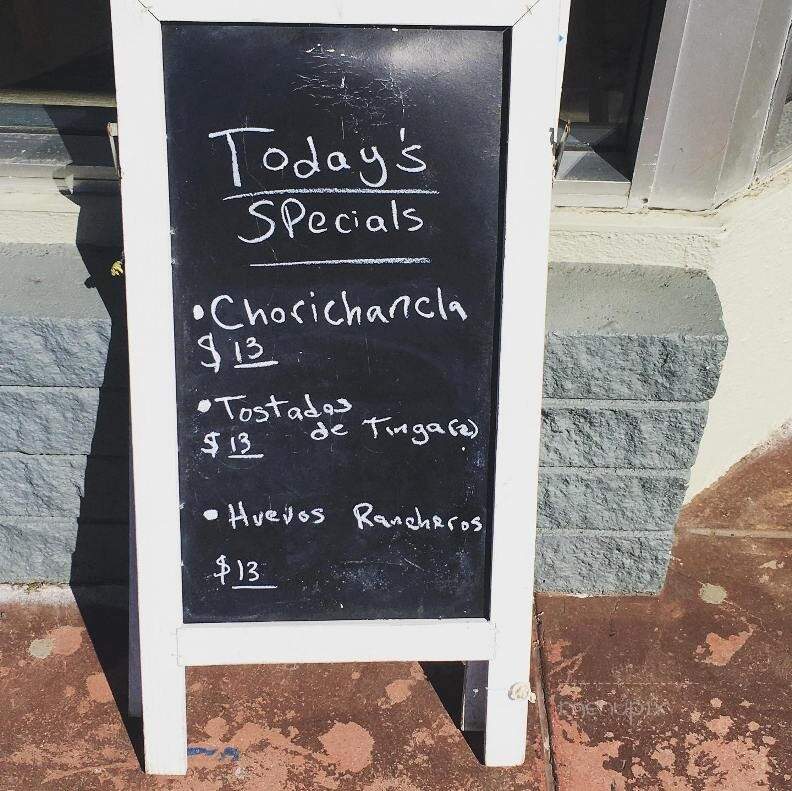 Today's
Specials
• Chorichancla
$ 13
• Tostadas
de Tinga (2)
$ 13
• Huevos Rancheros
$13
menupix